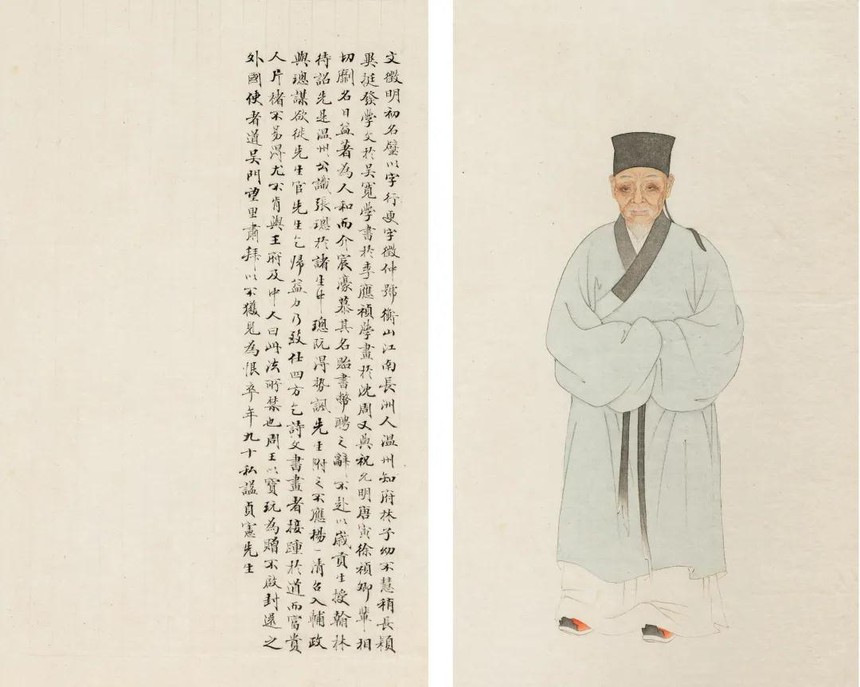 文徵明初名璧以字行更字徵仲號衡山江南長洲人温州知府林子幼不慧稍長穎
異挺發學文於吳寬學書於李應禎學畫於沈周又與祝允明唐寅徐禎卿輩相
切劘名日益著為人和而介宸濠慕其名貽書幣聘之辭不赴以歲貢生授翰林
待詔先是温州公識張璁於諸生中璁既得勢諷先生附之不應楊一清召入輔政
與璁謀欲徙先生官先生乞歸益力乃致仕四方乞詩文書畫者接踵於道而富貴
人片楮不易得尤不肯與王府及中人曰此法所禁也周王以寶玩為贈不啟封還之
外國使者道吳門望里肅拜以不獲見為恨卒年九十私諡貞憲先生